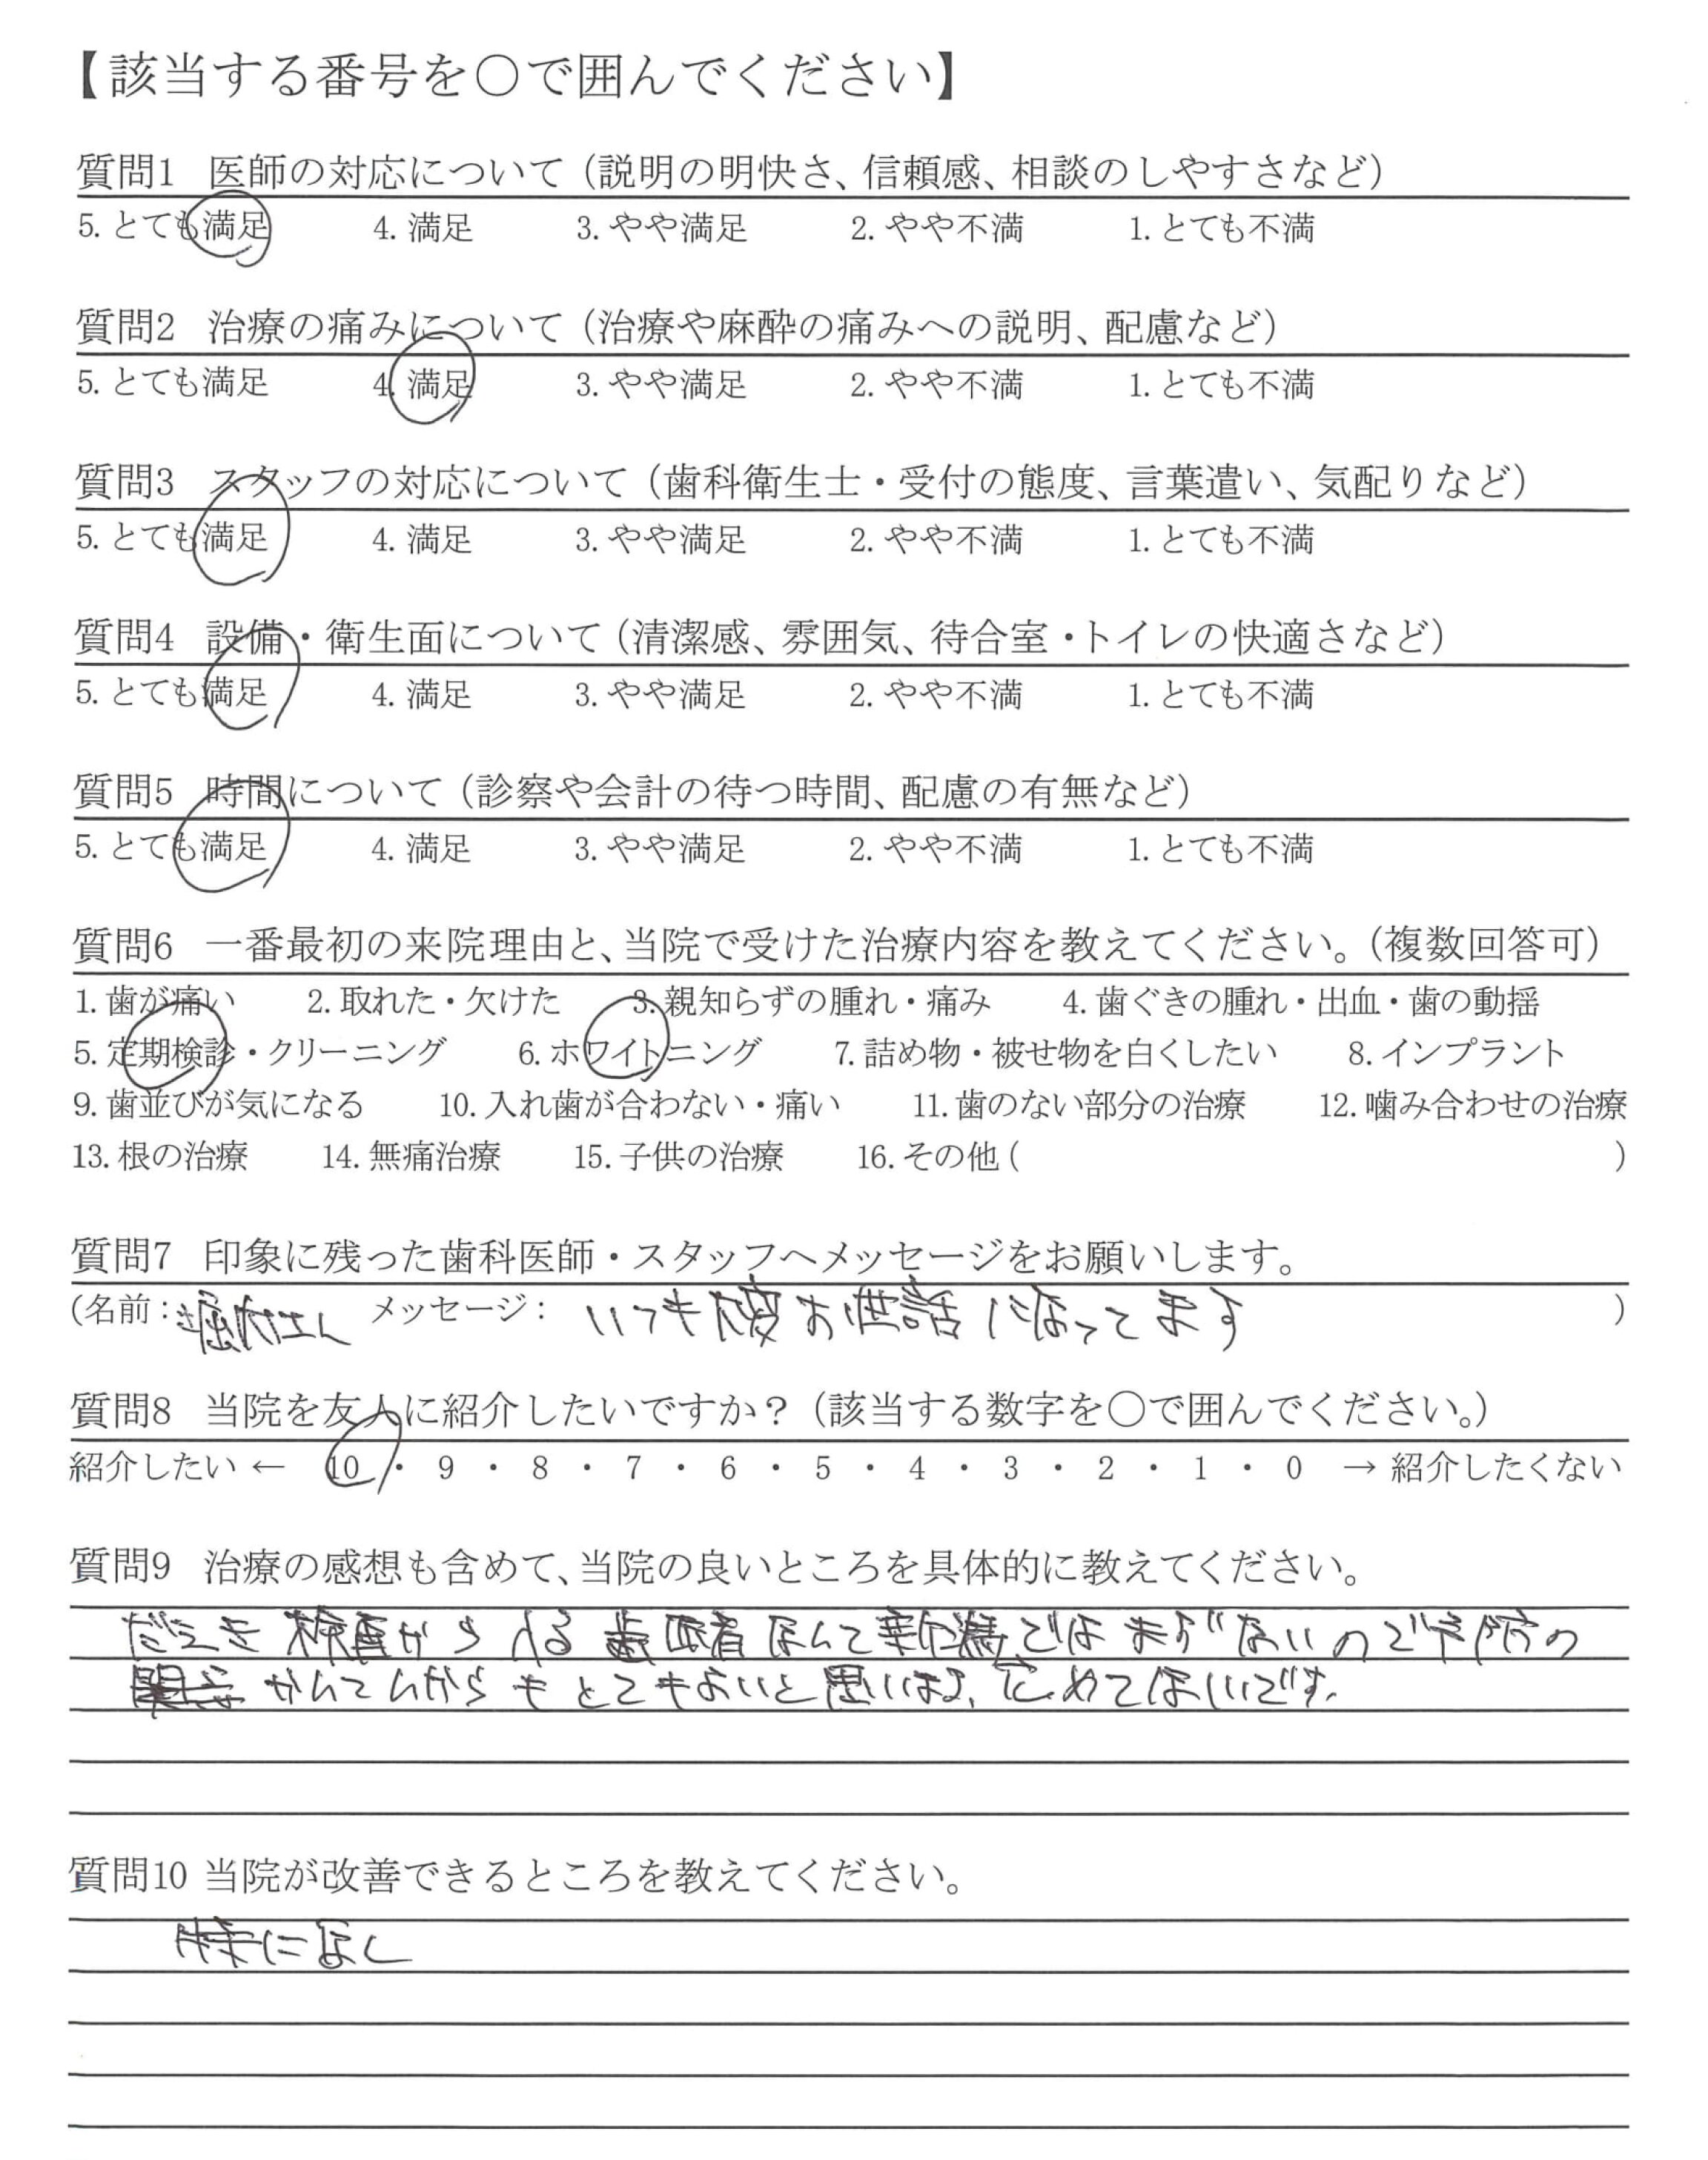 【該当する番号を〇で囲んでください】
質問1 医師の対応について（説明の明快さ、信頼感、相談のしやすさなど）
5. とても満足 4. 満足 3. やや満足 2. やや不満 1. とても不満
質問2 治療の痛みについて（治療や麻酔の痛みへの説明、配慮など）
5. とても満足 4. 満足 3. やや満足 2. やや不満 1. とても不満
質問3 スタッフの対応について（歯科衛生士・受付の態度、言葉遣い、気配りなど）
5. とても満足 4. 満足 3. やや満足 2. やや不満 1. とても不満
質問4 設備・衛生面について（清潔感、雰囲気、待合室・トイレの快適さなど）
5. とても満足 4. 満足 3. やや満足 2. やや不満 1. とても不満
質問5 時間について（診察や会計の待つ時間、配慮の有無など）
5. とても満足 4. 満足 3. やや満足 2. やや不満 1. とても不満
質問6 一番最初の来院理由と、当院で受けた治療内容を教えてください。（複数回答可）
1. 歯が痛い 2. 取れた・欠けた 3. 親知らずの腫れ・痛み 4. 歯ぐきの腫れ・出血・歯の動揺
5. 定期検診・クリーニング 6. ホワイトニング 7. 詰め物・被せ物を白くしたい 8. インプラント
9. 歯並びが気になる 10. 入れ歯が合わない・痛い 11. 歯のない部分の治療 12. 噛み合わせの治療
13. 根の治療 14. 無痛治療 15. 子供の治療 16. その他 ( )
質問7 印象に残った歯科医師・スタッフへメッセージをお願いします。
(名前： メッセージ： いつも大変お世話になってます )
質問8 当院を友人に紹介したいですか？（該当する数字を〇で囲んでください。）
紹介したい ← 10 ・ 9 ・ 8 ・ 7 ・ 6 ・ 5 ・ 4 ・ 3 ・ 2 ・ 1 ・ 0 → 紹介したくない
質問9 治療の感想も含めて、当院の良いところを具体的に教えてください。
だえき検査から入る歯医者なんて ではまずないので予防の
かんてんからもとてもよいと思います、広めてほしいです。
質問10 当院が改善できるところを教えてください。
特になし